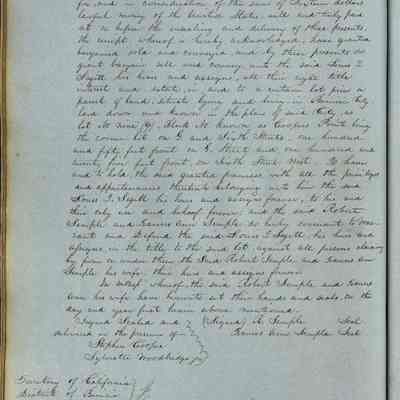 for and in consideration of the sum of Sixteen dollars
lawful money of the United States, well and truly paid
at or before the ensealing and delivery of these presents,
the receipt whereof is hereby acknowledged, have granted
bargained sold and conveyed and by these presents do
grant bargain sell and convey unto the said Louis
his heirs and assigns, all their right title
interest and estate, in and to a certain lot piece or
parcel of land, situate lying and being in Benicia City
laid down and known in the plan of said City, as
lot No nine (9), Block No known as Coopers being
the corner lot on G and Sixth Streets, one hundred
and fifty feet front on G Street and one hundred and
twenty five feet front on Sixth Street West. To have
and to hold the said granted premises with all the privileges
and appurtenances thereunto belonging unto him the said
Louis his heirs and assigns forever, to his and
their only use and behoof forever, and the said Robert
Semple and Frances Ann Semple do hereby covenant to war-
rant and defend the said Louis his heirs and
assigns, in the title to the said lot, against all persons claiming
by from or under them, the said Robert Semple and Frances Ann
Semple his wife, their heirs and assigns forever.
In witness whereof, the said Robert Semple and Frances
Ann his wife have hereunto set their hands and seals, on the
day and year first herein above mentioned.
Signed Sealed and (Signed) R. Semple Seal
delivered in the presence of Frances Ann Semple Seal
Stephen Cooper
Sylvester Woodbridge Jr
Territory of California
District of Benicia